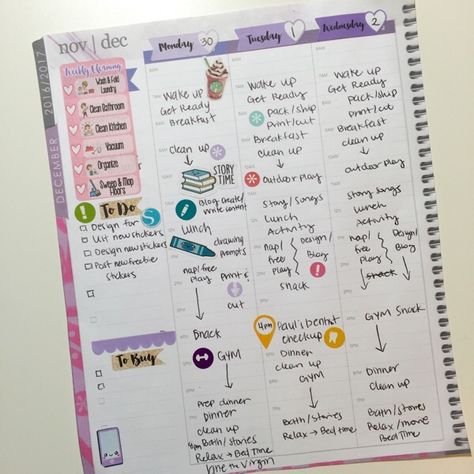 nov | dec
2016/2017
DECEMBER
Weekly Cleaning
Wash & Fold
Laundry
Clean Bathroom
Clean Kitchen
Vacuum
Organize
Sweep & Mop
Floors
To Do
Design for
List new stickers
Design new stickers
Post new freebie
stickers
To Buy
Monday 30
wake up
Get Ready
Breakfast
clean up
STORY
TIME
Blog create/
write content
lunch
drawing
prompts
nap/free
play
Print &
cut
Snack
GYM
prep dinner
Dinner
clean up
8pm Bath/stories
Relax → Bed Time
Jane the Virgin
Tuesday 1
wake up
Get Ready
pack/ship
print/cut
Breakfast
clean up
outdoor play
Story/Songs
Lunch
Activity
nap/
free
play
Design/
Blog
snack
4pm
Paul's Dentist
checkup
Dinner
clean up
GYM
Bath/stories
Relax → Bed time
Wednesday 2
wake up
Get Ready
Pack/ship
print/cut
Breakfast
clean up
outdoor play
Story songs
lunch
Activity
nap/
free
play
Design/
Blog
snack
GYM Snack
Dinner
clean up
Bath/stories
Relax/movie
Bed Time